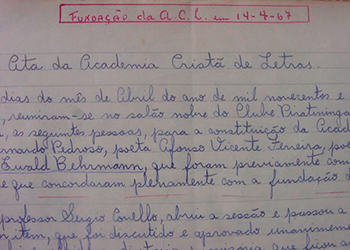 FUNDAÇÃO da A.C.L. em 14-4-67
Ata da Academia Cristã de Letras.
dias do mês de Abril do ano de mil novecentos e
, reuniram-se no salão nobre do Clube Piratininga
, as seguintes pessoas, para a constituição da Acad
rnando Pedroso, poeta Afonso Vicente Ferreira, po
Ewald Behrmann, que foram previamente con
e que concordaram plenamente com a fundação d
professor Sergio Covello, abriu a sessão e passou a
item, que foi discutido e aprovado unanimemen